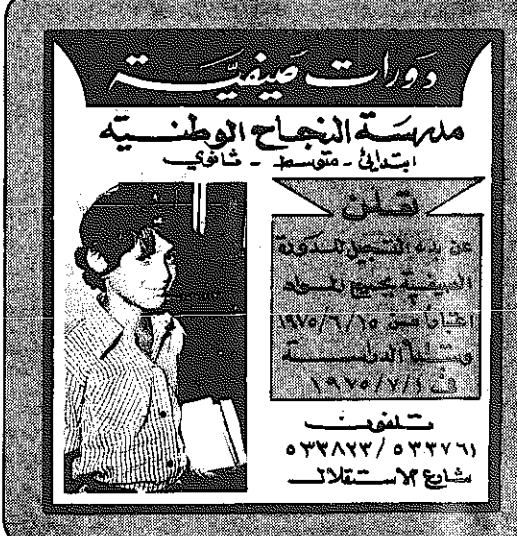 دورات صيفيّة
مدرسة النجاح الوطنية
ابتدائي - متوسط - ثانوي
تعلن
عن بدء التسجيل للدورة
الصيفية بجميع المواد
اعتباراً من ١٩٧٥/٦/١٥
وتبدأ الدراسة
في ١٩٧٥/٧/١
تلفون
٥٣٣٨٢٣ / ٥٣٣٧٦١
شارع الاستقلال